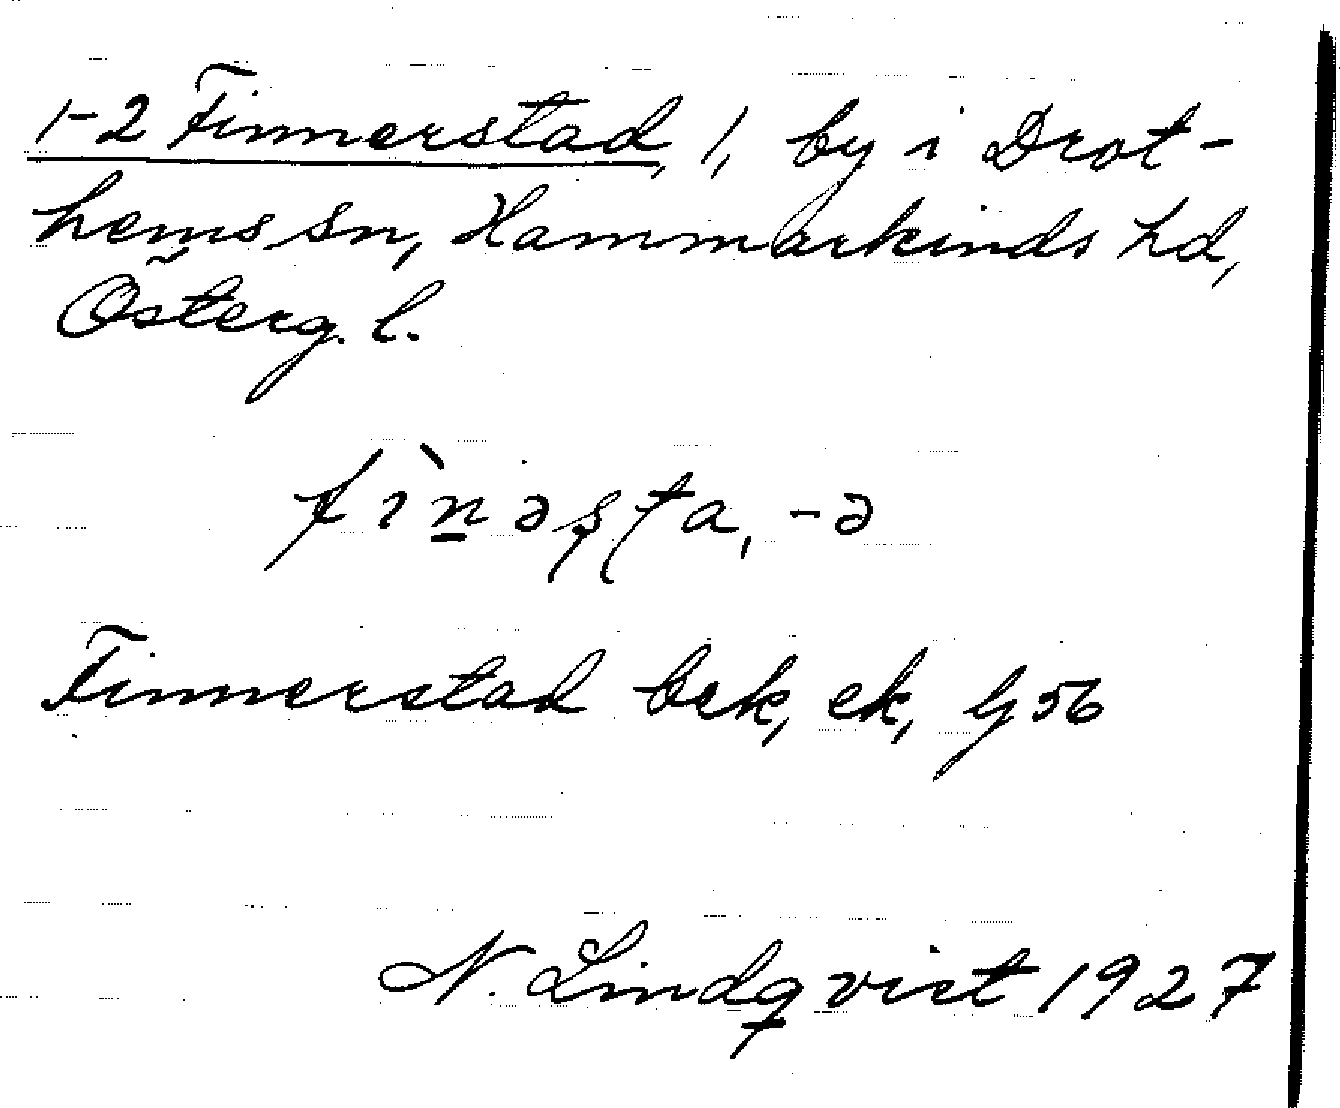 1-2 Finnerstad, 1, by i Drot-
hems sn, Hammarkinds hd,
Österg. l.
fìn̲əʂʈa, -ə
Finnerstad bek, ek, G 56
N. Lindqvist 1927